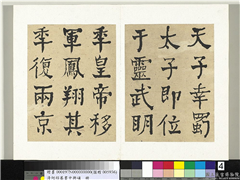 天子幸蜀
太子即位
于靈武明
秊皇帝移
軍鳳翔其
秊復兩京
4